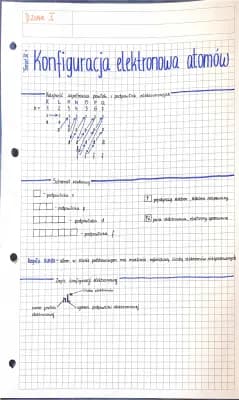 DZIAŁ I
Temat:
Konfiguracja elektronowa atomów
Kolejność zapełniania powłok i podpowłok elektronowych
K L M N O P Q
n = 1 2 3 4 5 6 7
Schemat klatkowy
- podpowłoka s
- podpowłoka p
- podpowłoka d
- podpowłoka f
↑ pojedynczy elektron, elektron niesparowany
↑↓ para elektronowa, elektrony sparowane
Reguła Hunda - atom w stanie podstawowym ma możliwie największą liczbę elektronów niesparowanych
Zapis konfiguracji elektronowej
liczba elektronów
nl
numer powłoki
elektronowej
symbol podpowłoki elektronowej